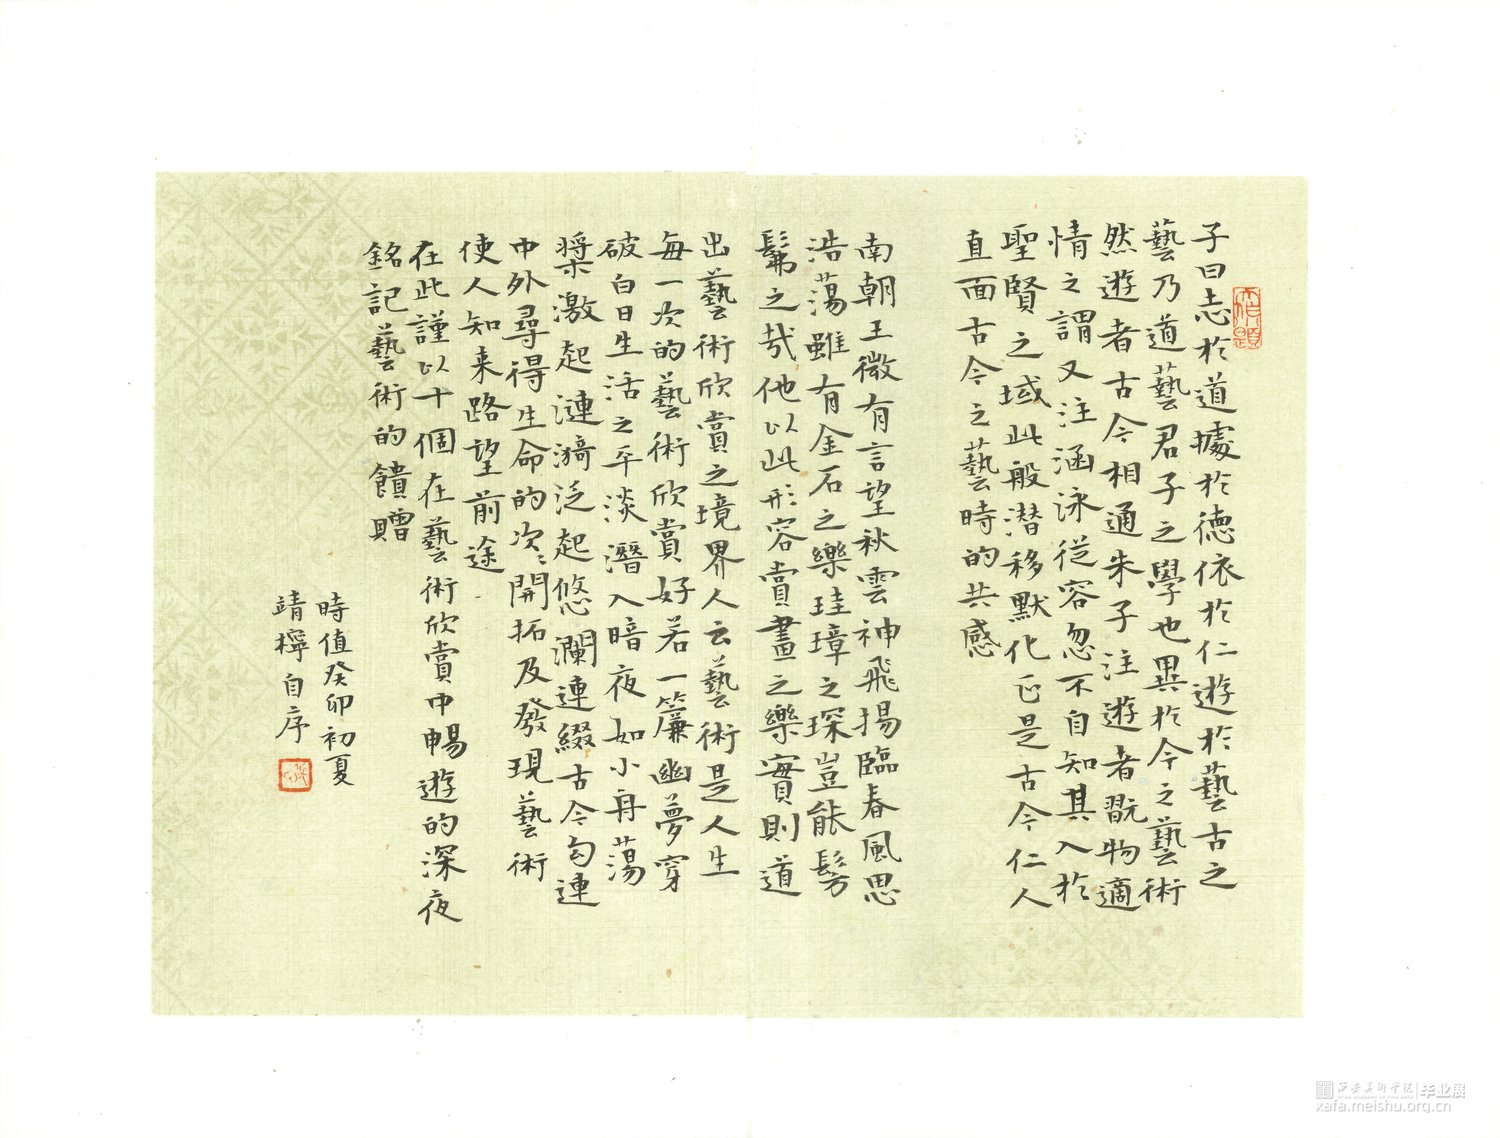 子曰志於道據於德依於仁遊於藝古之
藝乃道藝君子之學也異於今之藝術
然遊者古今相通朱子注遊者翫物適
情之謂又注涵泳從容忽不自知其入於
聖賢之域此般潜移默化正是古今仁人
直面古今之藝時的共感
南朝王微有言望秋雲神飛揚臨春風思
浩蕩雖有金石之樂珪璋之琛豈能髣
髴之哉他以此形容賞畫之樂實則道
出藝術欣賞之境界人云藝術是人生
每一次的藝術欣賞好若一簾幽夢穿
破白日生活之平淡潛入暗夜如小舟蕩
槳激起漣漪泛起悠瀾連綴古今勾連
中外尋得生命的次次開拓及發現藝術
使人知来路望前途
在此謹以十個在藝術欣賞中暢遊的深夜
銘記藝術的饋贈
時值癸卯初夏
靖檸自序
西安美术学院 毕业展
xafa.meishu.org.cn